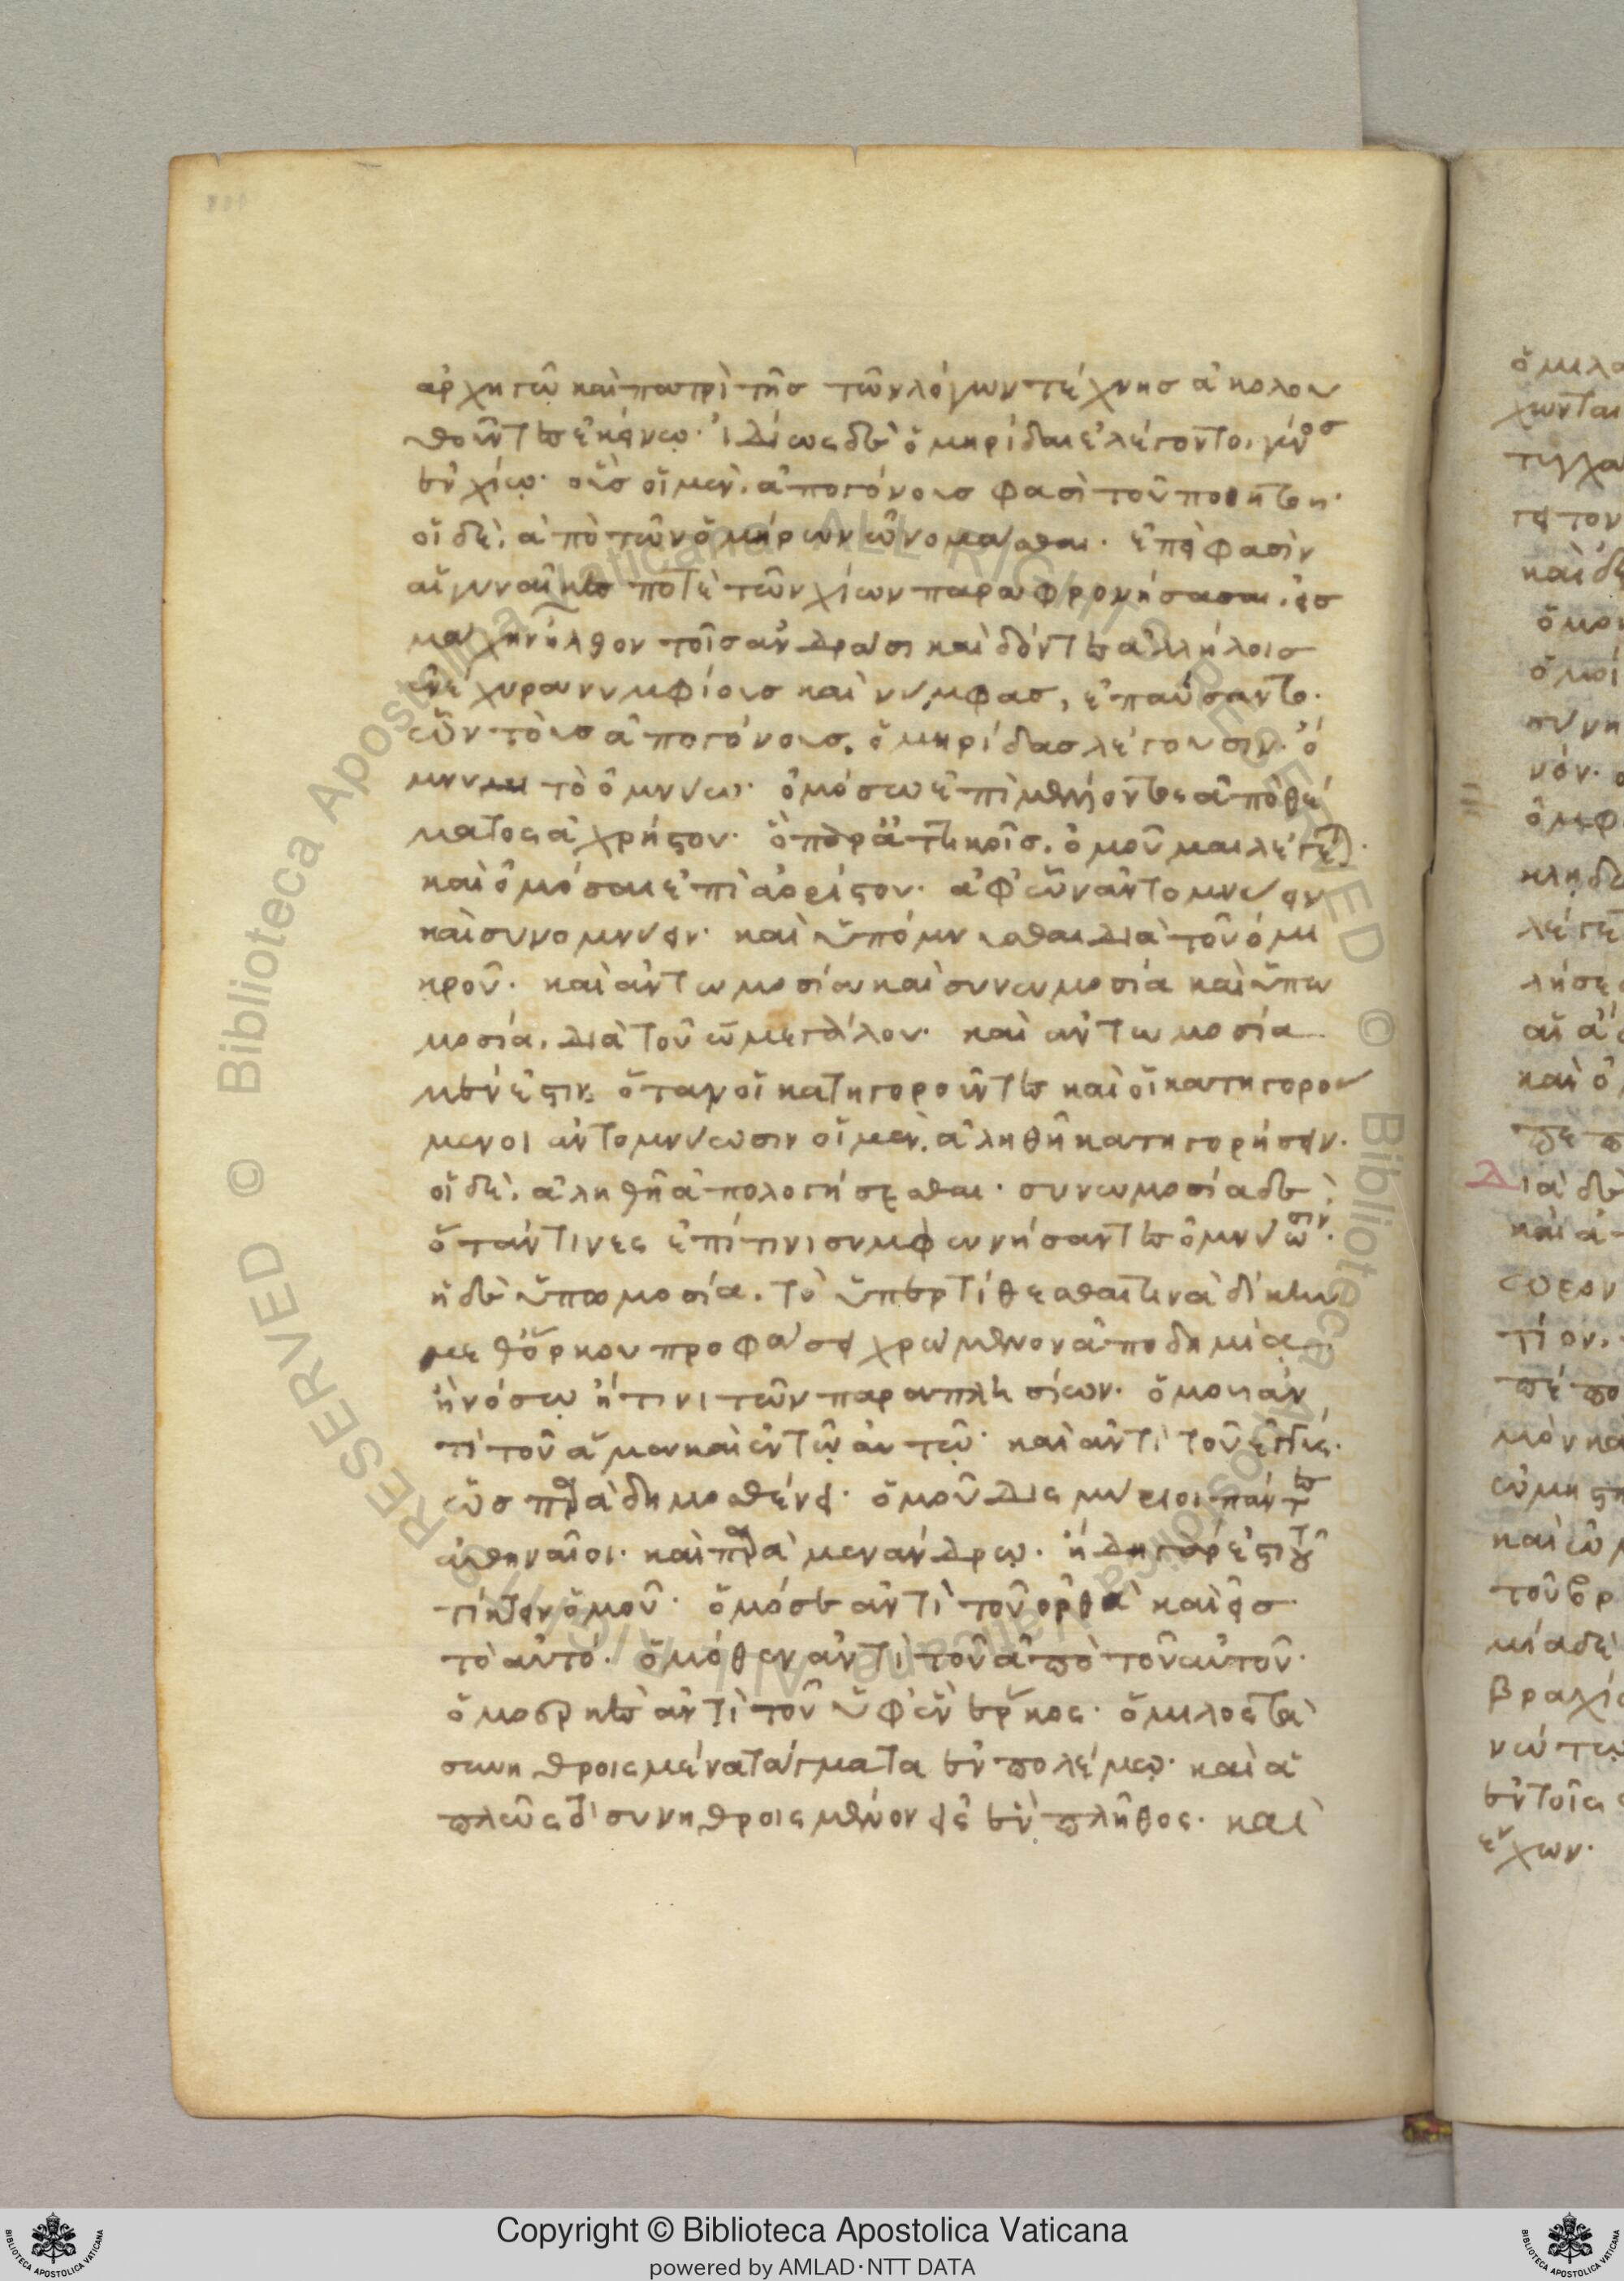 ἀρχηγῶ καὶ πατρὶ τῆς τῶν λόγων τέχνης ἀκολου
θοῦντες ἐκείνω· ἰδίως δὲ ὁμηρίδαι ἐλέγοντο, γένος
ἐν χίω· οὓς οἱ μὲν, ἀπογόνους φασὶ τοῦ ποιητοῦ·
οἱ δὲ, ἀπὸ τῶν ὁμήρων ὠνομάσθαι· ἐπεὶ φασὶν
αἱ γυναῖκες ποτὲ τῶν χίων παραφρονήσασαι, εἰς
μάχην ἦλθον τοῖς ἀνδράσι καὶ δόντες ἀλλήλοις
ἐνέχυρα νυμφίους καὶ νύμφας, ἐπαύσαντο·
ὧν τοὺς ἀπογόνους, ὁμηρίδας λέγουσιν· ὄ
μνυμι τὸ ὀμνύω· ὀμόσω ἐπὶ μέλλοντος ἀπὸ θέ
ματος ἀχρήστου· ὅπερ ἀττικοῖς, ὀμοῦμαι λέγεται·
καὶ ὀμόσαι ἐπὶ ἀορίστου· ἀφ' ὧν ἀντομνύειν
καὶ συνομνύειν· καὶ ὑπόμνυσθαι διὰ τοῦ ο μι
κροῦ· καὶ ἀντωμοσία καὶ συνωμοσία καὶ ὑπω
μοσία, διὰ τοῦ ω μεγάλου· καὶ ἀντωμοσία
μέν ἐστιν, ὅταν οἱ κατηγοροῦντες καὶ οἱ κατηγορού
μενοι ἀντομνύωσιν οἱ μὲν, ἀληθῆ κατηγορήσειν·
οἱ δὲ, ἀληθῆ ἀπολογήσεσθαι· συνωμοσία δὲ
ὅταν τινες ἐπί τινι συμφωνήσαντες ὀμνύωσιν·
ἡ δὲ ὑπωμοσία, τὸ ὑπερτίθεσθαι τινὰ δίκην
μεθ' ὅρκου προφάσει χρώμενον ἀποδημία
ἢ νόσω ἤ τινι τῶν παραπλησίων· ὁμοῦ ἀν
τὶ τοῦ ἅμα καὶ ἐν τῶ αὐτῶ· καὶ ἀντὶ τοῦ ἐγγύς·
ὡς παρὰ δημοσθένει· ὁμοῦ δις μύριοι πάντες
ἀθηναῖοι· καὶ παρὰ μενάνδρω· ἤδη γάρ ἐστι τοῦ
τίκτειν ὁμοῦ· ὁμόσε ἀντὶ τοῦ ὀρθὰ καὶ εἰς
τὸ αὐτό· ὁμόθεν ἀντὶ τοῦ ἀπὸ τοῦ αὐτοῦ·
ὁμοερκὲς ἀντὶ τοῦ ὑφ' ἓν ἕρκος· ὅμιλος τὰ
συνηθροισμένα τάγματα ἐν πολέμω· καὶ ἁ
πλῶς τὸ συνηθροισμένον εἰς ἓν πλῆθος· καὶ
Copyright © Biblioteca Apostolica Vaticana
powered by AMLAD·NTT DATA